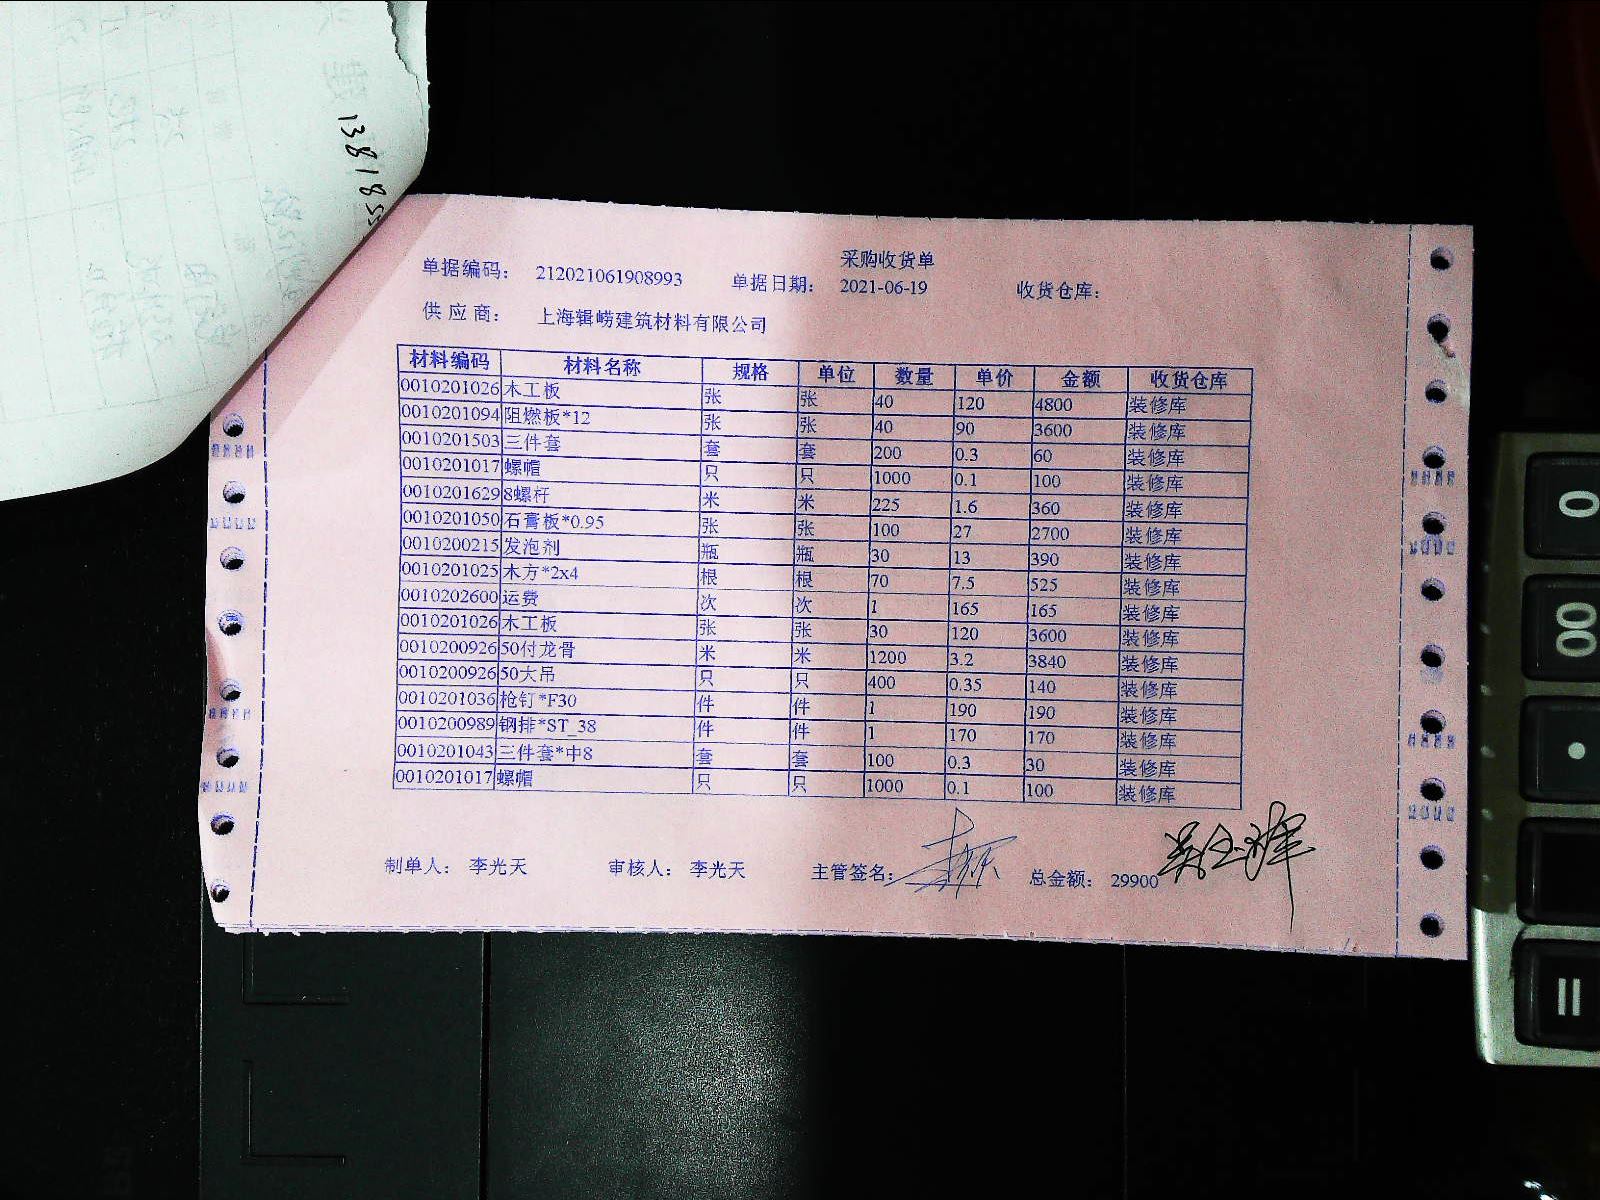 138185
采购收货单
单据编码： 212021061908993 单据日期： 2021-06-19 收货仓库：
供 应 商： 上海辑崂建筑材料有限公司
材料编码 材料名称 规格 单位 数量 单价 金额 收货仓库
0010201026 木工板 张 张 40 120 4800 装修库
0010201094 阻燃板*12 张 张 40 90 3600 装修库
0010201503 三件套 套 套 200 0.3 60 装修库
0010201017 螺帽 只 只 1000 0.1 100 装修库
0010201629 8螺杆 米 米 225 1.6 360 装修库
0010201050 石膏板*0.95 张 张 100 27 2700 装修库
0010200215 发泡剂 瓶 瓶 30 13 390 装修库
0010201025 木方*2x4 根 根 70 7.5 525 装修库
0010202600 运费 次 次 1 165 165 装修库
0010201026 木工板 张 张 30 120 3600 装修库
0010200926 50付龙骨 米 米 1200 3.2 3840 装修库
0010200926 50大吊 只 只 400 0.35 140 装修库
0010201036 枪钉*F30 件 件 1 190 190 装修库
0010200989 钢排*ST_38 件 件 1 170 170 装修库
0010201043 三件套*中8 套 套 100 0.3 30 装修库
0010201017 螺帽 只 只 1000 0.1 100 装修库
制单人： 李光天 审核人： 李光天 主管签名： 总金额： 29900
0
00
=